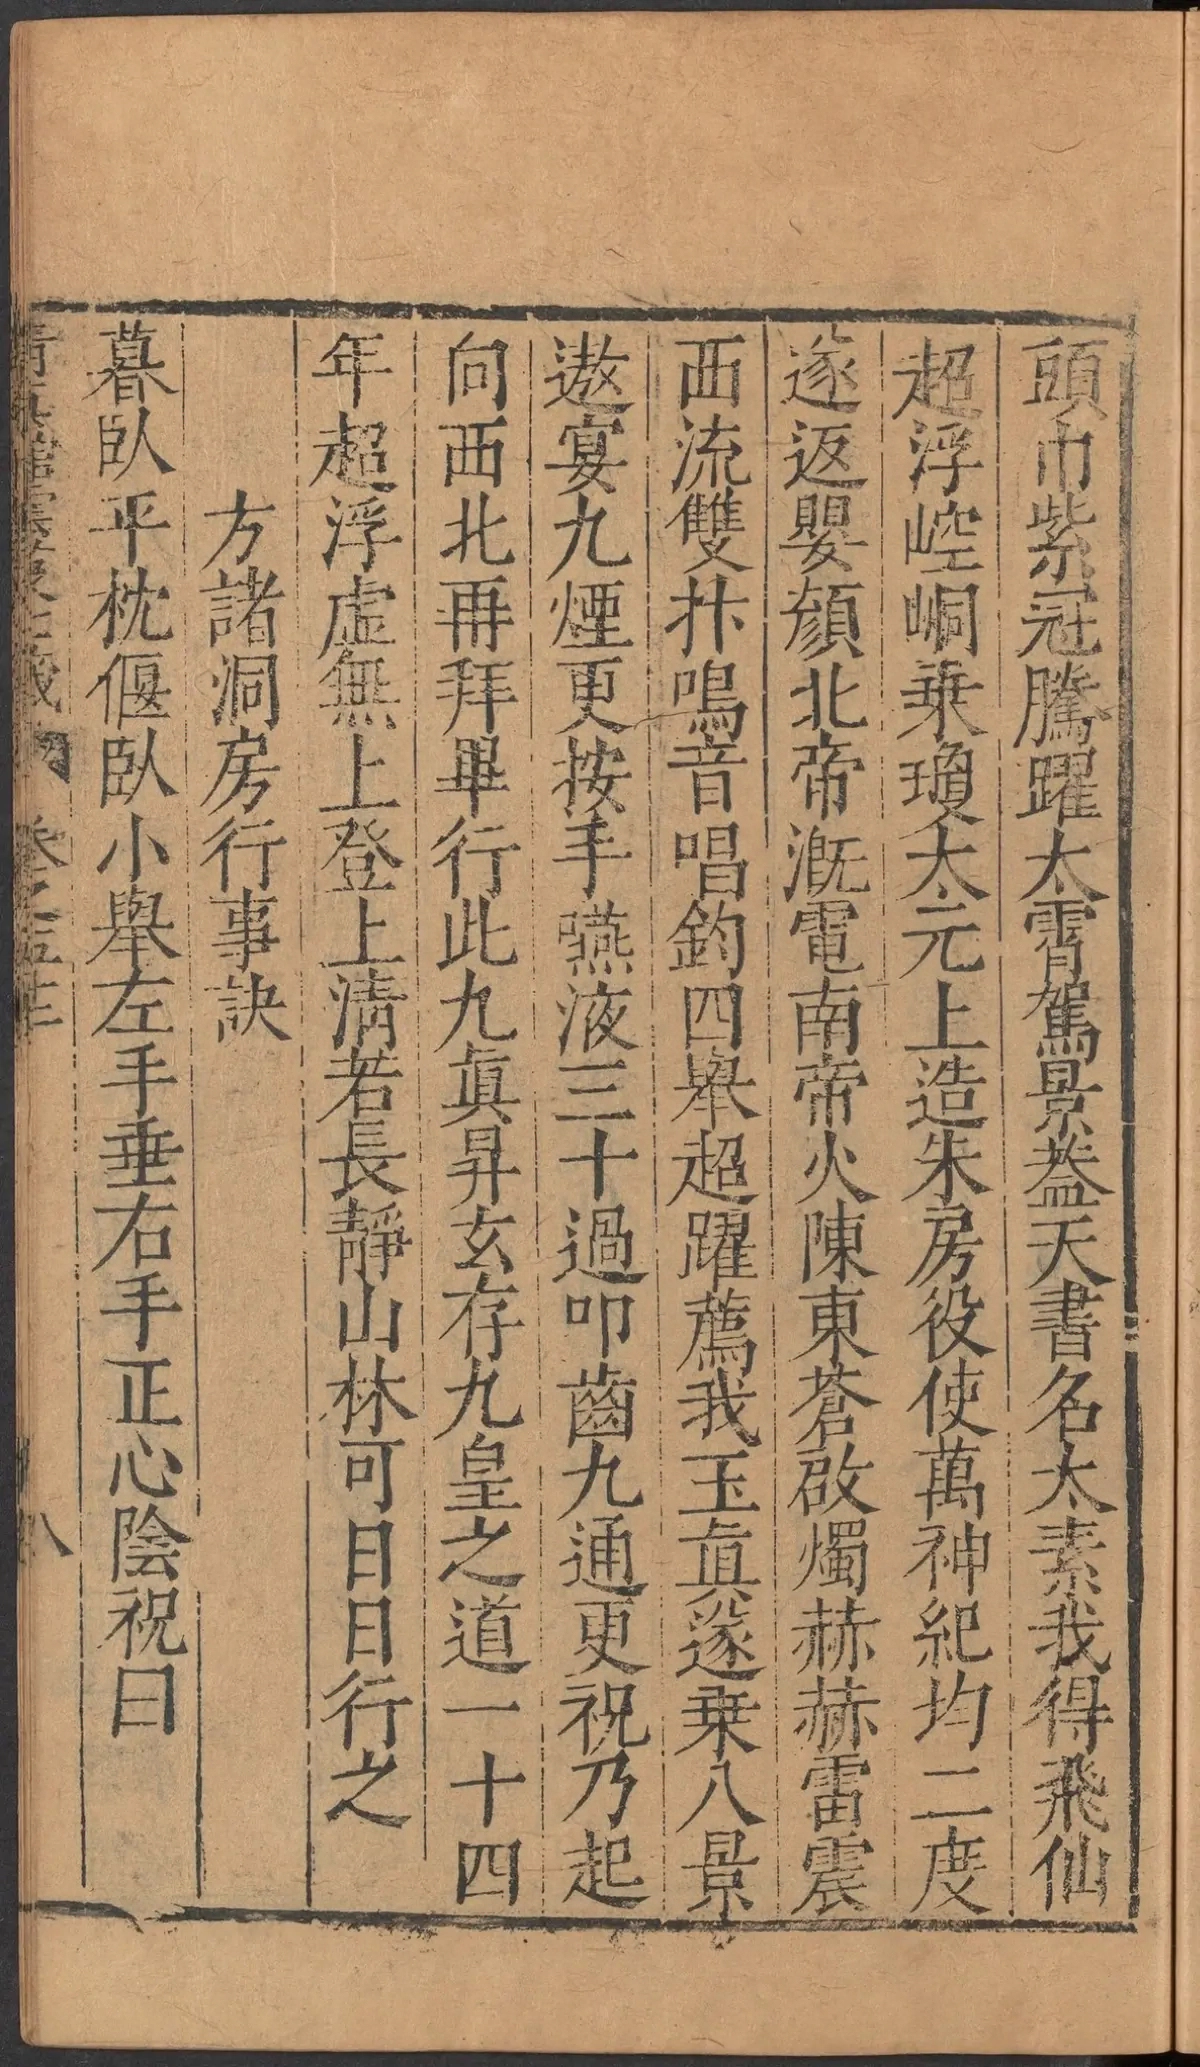 頭巾紫冠騰躍太霄駕景葢天書名太素我得飛仙
超浮崆峒乗瓊太元上造朱房役使萬神紀均二度
遂返嬰顔北帝漑電南帝火陳東蒼啟燭赫赫雷震
西流雙抃鳴音唱鈞四舉超躍薦我玉眞遂乗八景
遨宴九煙更按手嚥液三十過叩齒九通更祝乃起
向西北再拜畢行此九眞昇玄存九皇之道一十四
年超浮虛無上登上清若長靜山林可日日行之
方諸洞房行事訣
暮臥平枕偃臥小舉左手垂右手正心陰祝曰
八